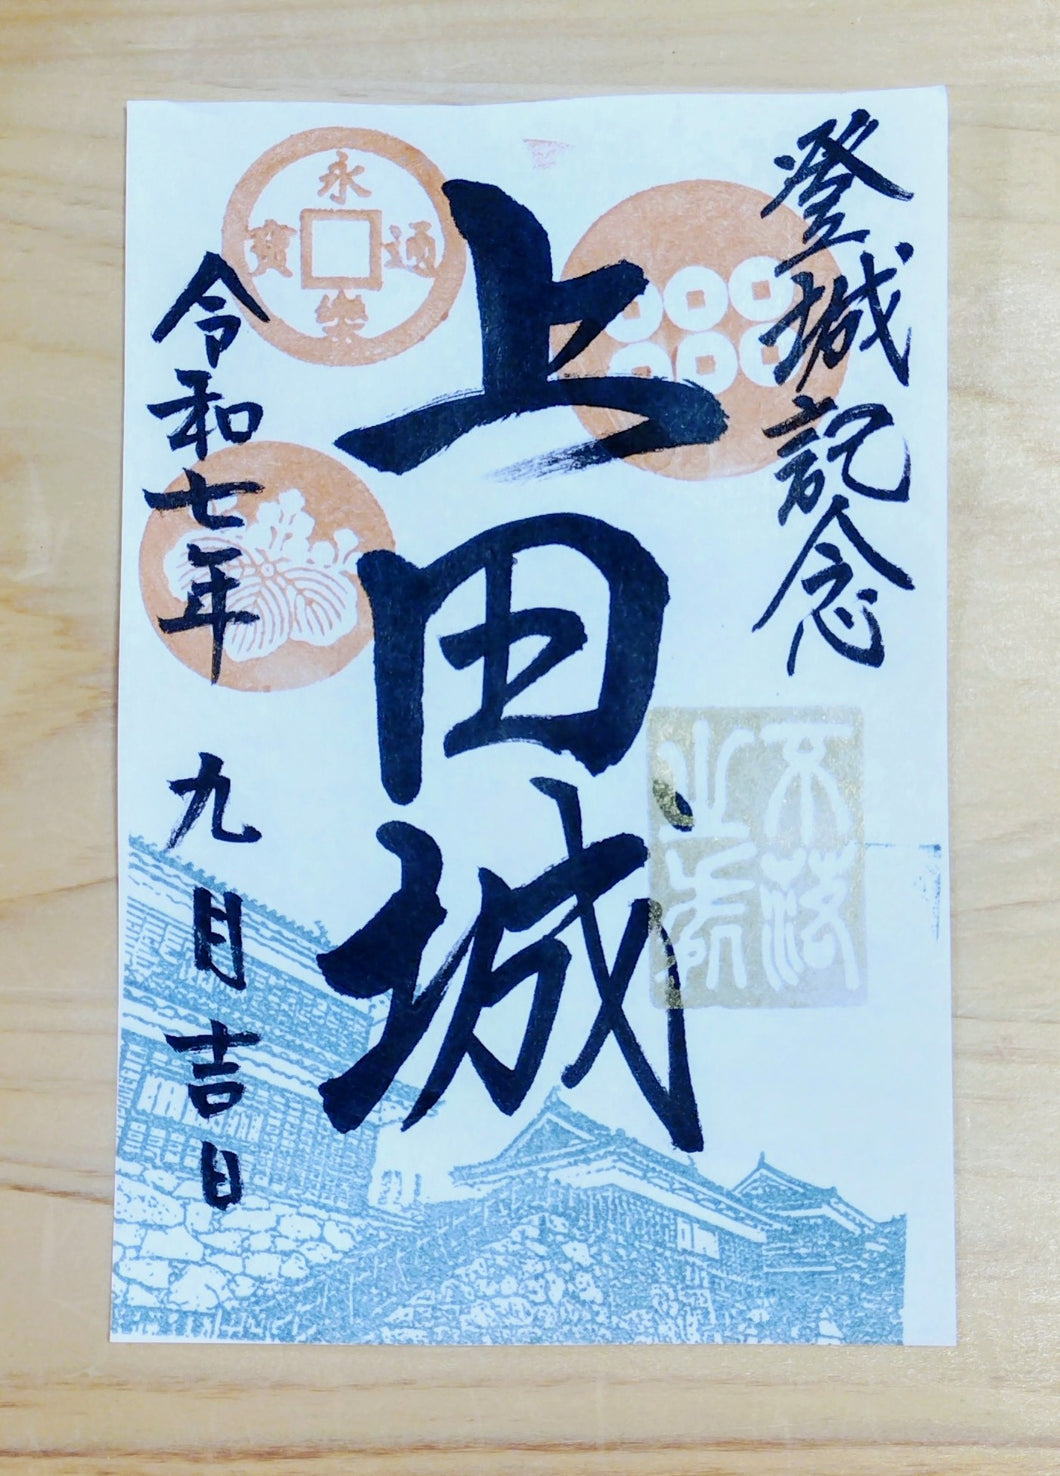 登城記念
上田城
不落
之城
永樂通寶
令和七年
九月吉日